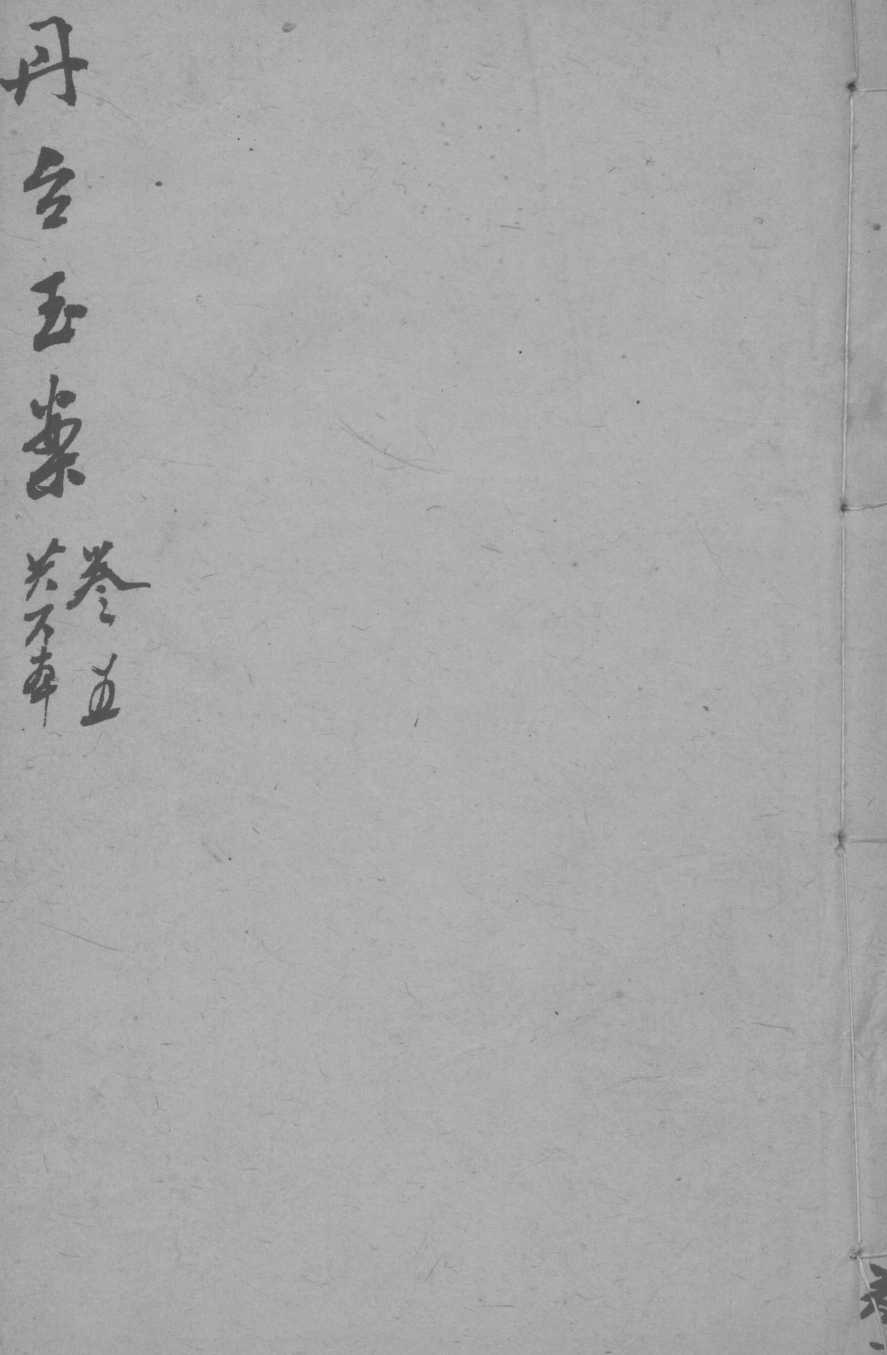 丹台玉案
卷五
共六本